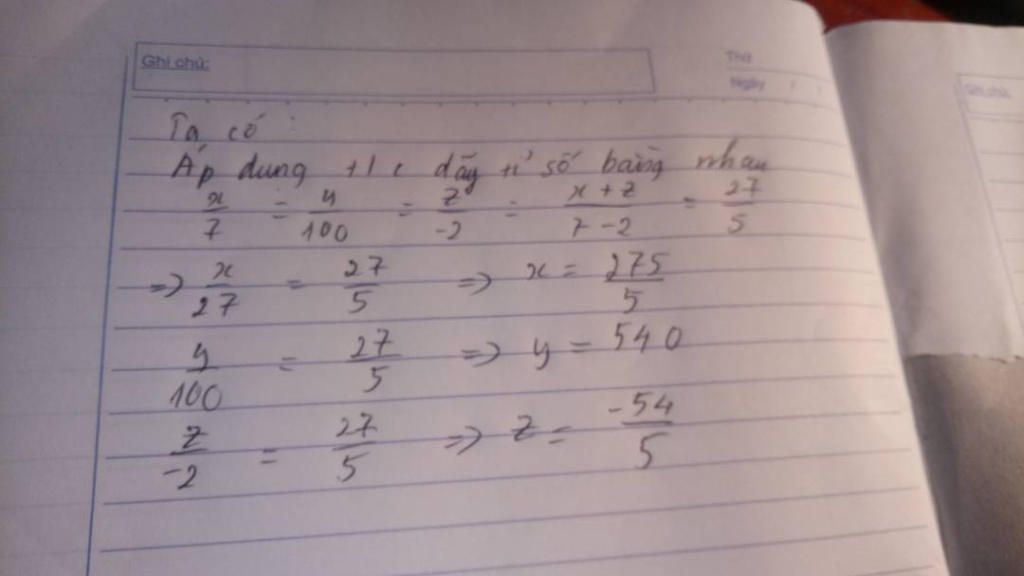 Ghi chú:
Thứ
Ngày / /
Ghi chú:
Ta có :
Áp dụng t/c dãy tỉ số bằng nhau
x/7 = y/100 = z/-2 = x+z/7-2 = 27/5
=> x/27 = 27/5 => x = 275/5
y/100 = 27/5 => y = 540
z/-2 = 27/5 => z = -54/5